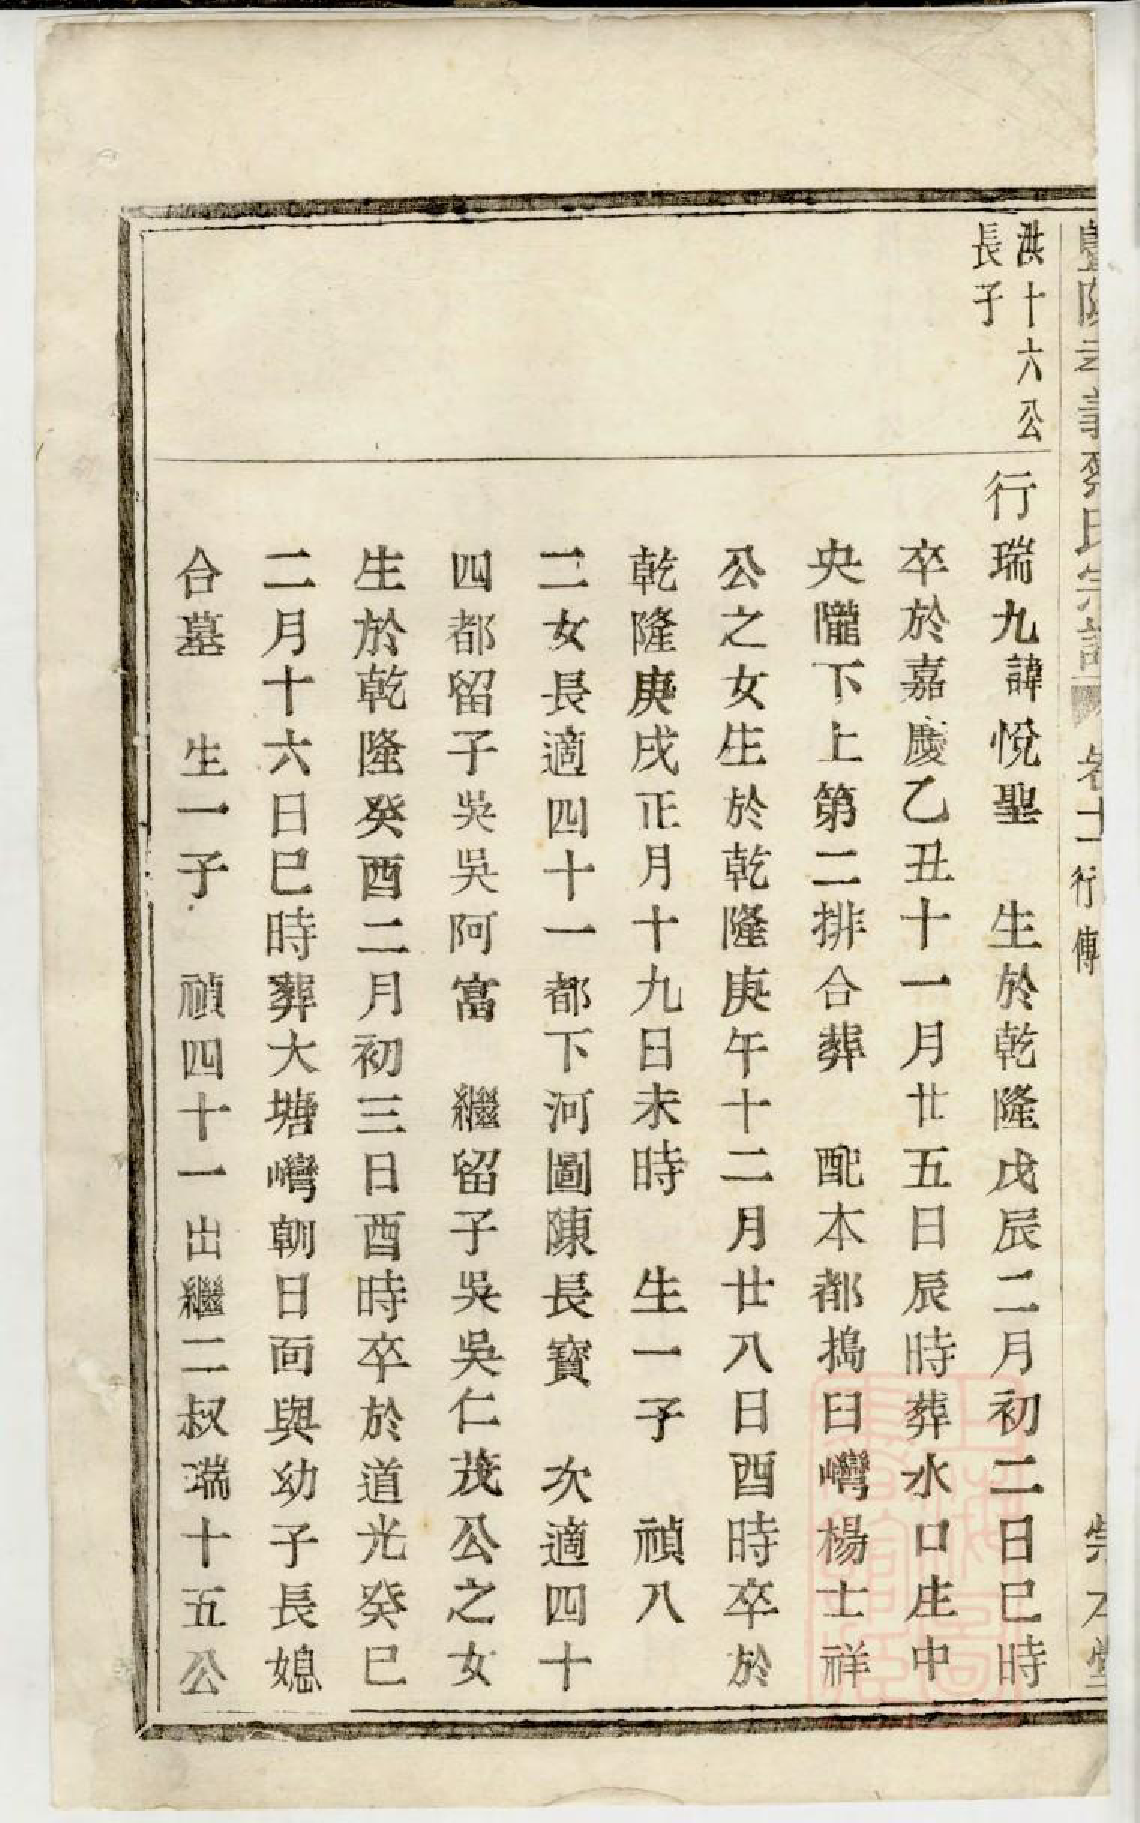 宗
卷十一
行傳
崇本堂
洪十六公
長子
行瑞九諱悅聖　生於乾隆戊辰二月初二日巳時
卒於嘉慶乙丑十一月廿五日辰時葬水口庄中
央隴下上第二排合葬　配本都搗臼灣楊士祥
公之女生於乾隆庚午十二月廿八日酉時卒於
乾隆庚戌正月十九日未時　生一子　禎八
二女長適四十一都下河圖陳長寶　次適四十
四都留子吳吳阿富　繼留子吳吳仁茂公之女
生於乾隆癸酉二月初三日酉時卒於道光癸巳
二月十六日巳時葬大塘灣朝日面與幼子長媳
合墓　生一子　禎四十一出繼二叔瑞十五公